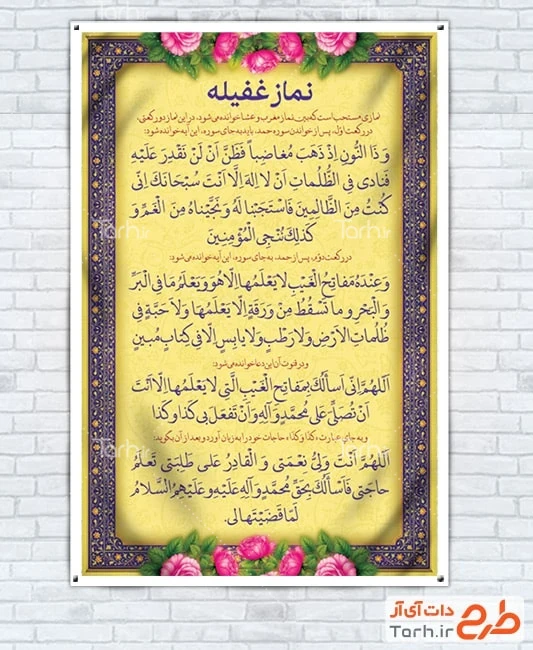 نماز غفیله
نمازی مستحب است که بین نماز مغرب و عشا خوانده می‌شود، در این نماز دو رکعتی،
در رکعت اوّل، پس از خواندن سوره حمد، باید به جای سوره، این آیه خوانده شود:
وَ ذَا النُّونِ اِذْ ذَهَبَ مُغاضِباً فَظَنَّ اَنْ لَنْ نَقْدِرَ عَلَیْهِ
فَنادی فِی الظُّلُماتِ اَنْ لا اِلهَ اِلّا اَنْتَ سُبْحَانَکَ اِنّی
کُنْتُ مِنَ الظَّالِمِینَ فَاسْتَجَبْنا لَهُ وَ نَجَّیْناهُ مِنَ الْغَمِّ وَ
کَذلِکَ نُنْجِی الْمُؤْمِنِینَ
در رکعت دوّم، پس از حمد، به جای سوره، این آیه خوانده می‌شود:
وَ عِنْدَهُ مَفاتِحُ الْغَیْبِ لا یَعْلَمُها اِلّا هُوَ وَ یَعْلَمُ ما فِی الْبَرِّ
وَ الْبَحْرِ وَ ما تَسْقُطُ مِنْ وَرَقَةٍ اِلّا یَعْلَمُهَا وَلا حَبَّةٍ فِی
ظُلُماتِ الْاَرْضِ وَ لا رَطْبٍ وَ لا یابِسٍ اِلّا فی کِتابٍ مُبینٍ
و در قنوت آن این دعا خوانده می‌شود:
اَللّهُمَّ اِنّی اَسأَلُکَ بِمَفاتِحِ الْغَیْبِ الَّتی لا یَعْلَمُها اِلّا اَنْتَ
اَنْ تُصَلِّیَ عَلی مُحَمَّدٍ وَ آلِهِ وَ اَنْ تَفْعَلَ بی کَذا وَ کَذا
و به جای عبارت «کذا و کذا» حاجات خود را به زبان آورد و بعد از آن بگوید:
اَللّهُمَّ اَنْتَ وَلِیُّ نِعْمَتی وَ الْقادِرُ عَلی طَلِبَتی تَعْلَمُ
حاجَتی فَاَسْأَلُکَ بِحَقِّ مُحَمَّدٍ وَ آلِهِ عَلَیْهِ وَ عَلَیْهِمُ السَّلامُ
لَمّا قَضَیْتَها لی.
طرح
دات آی آر
Tarh.ir